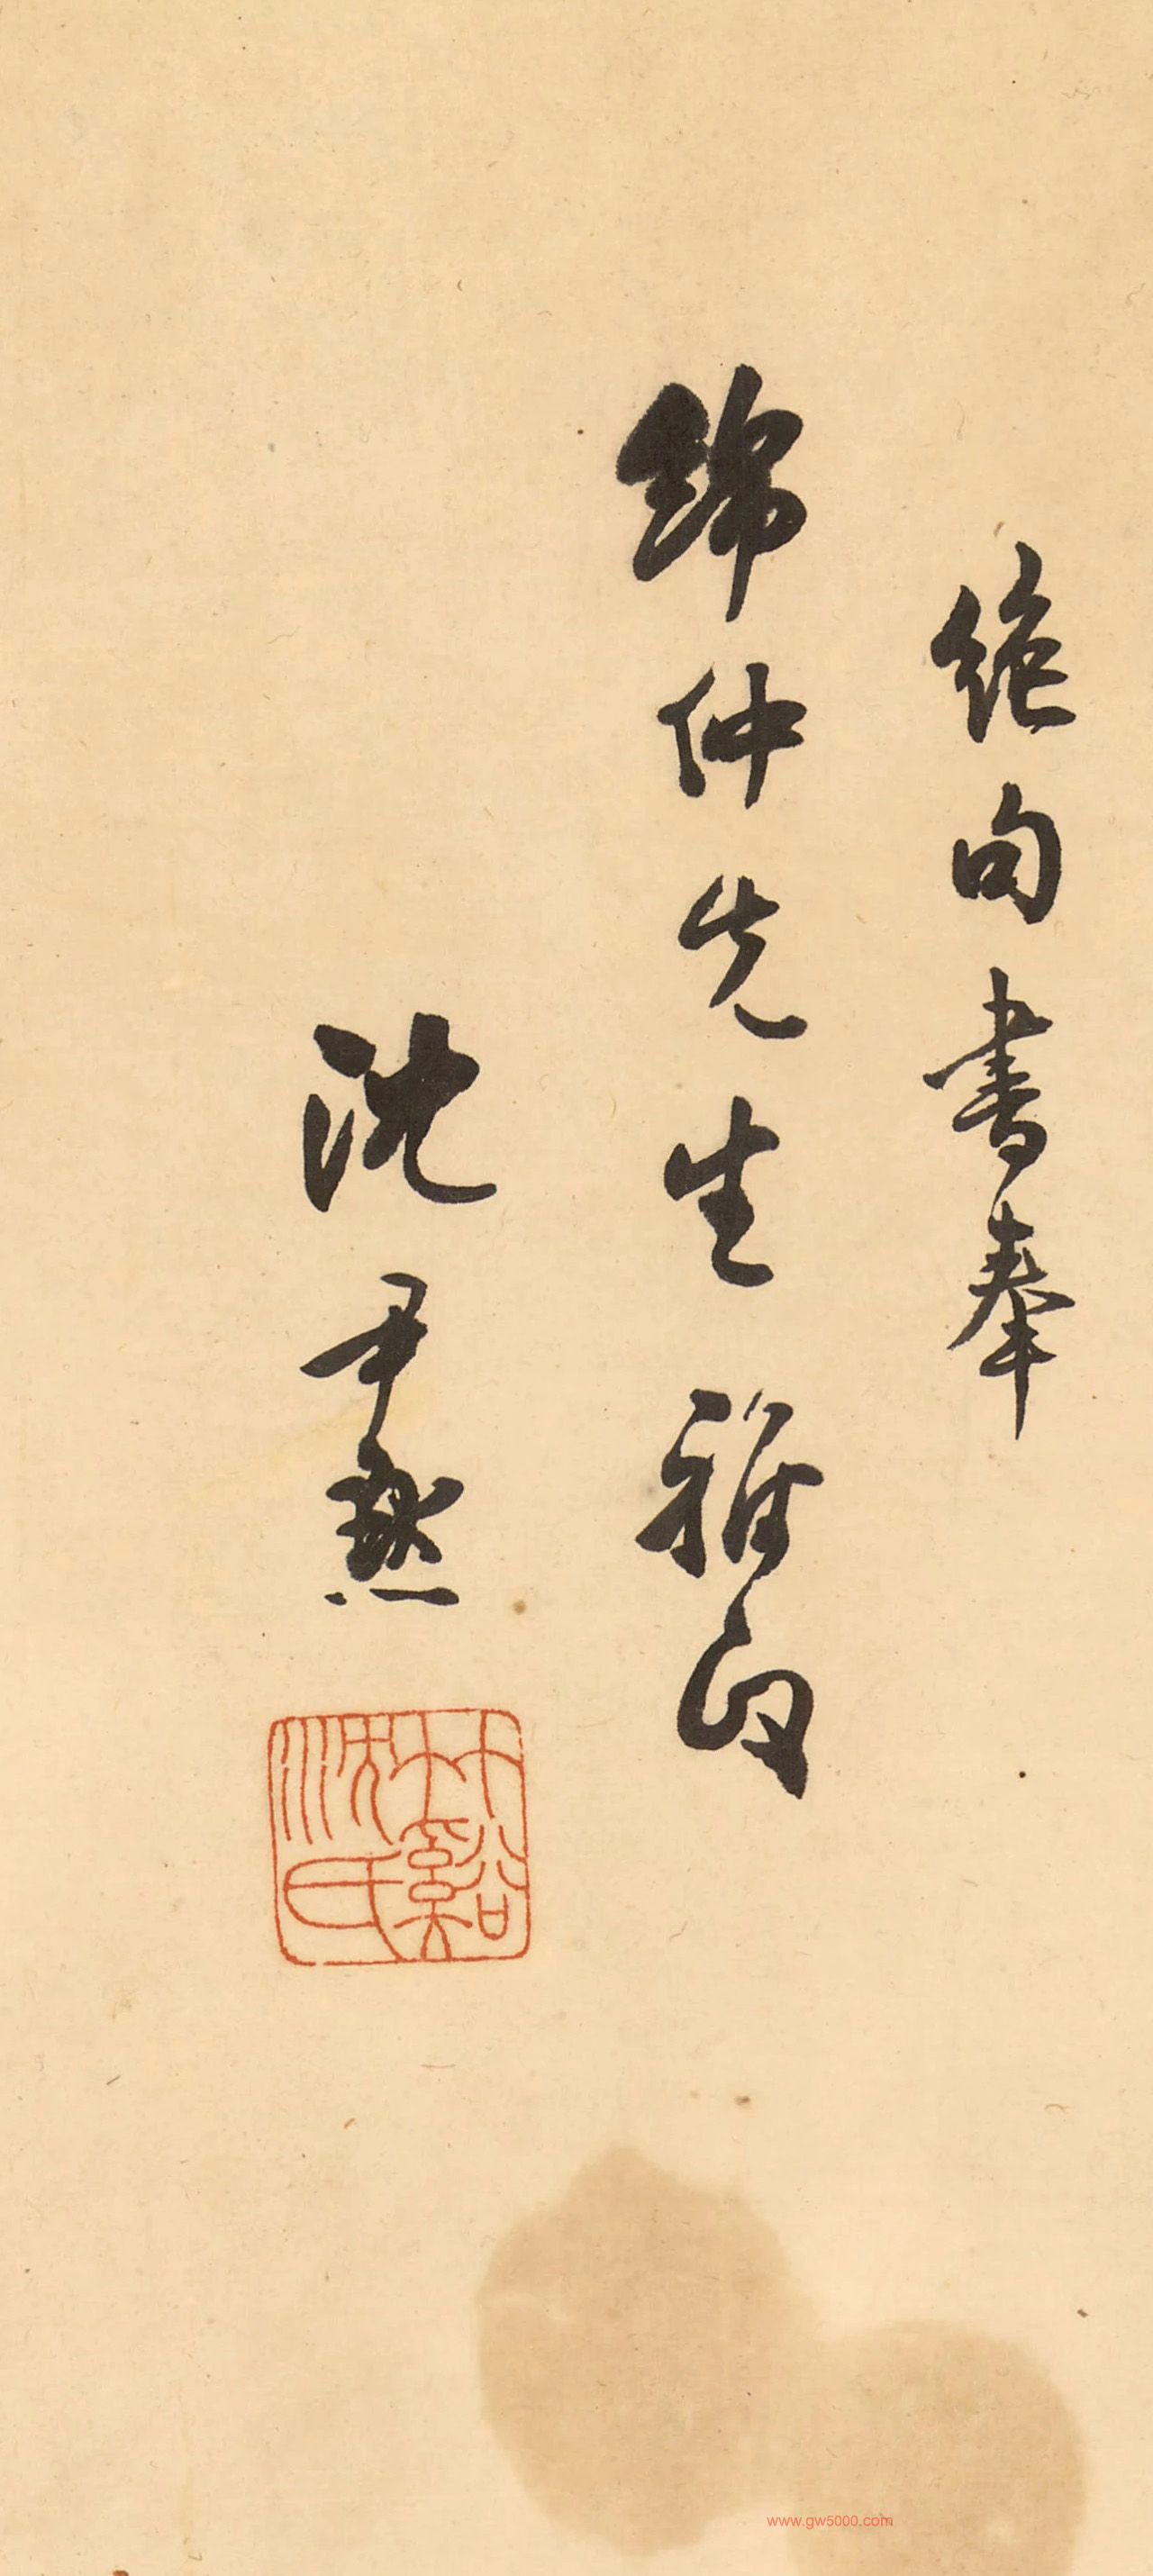 絶句書奉
綿仲先生雅正
沈尹默
竹谿沈氏
www.gw5000.com